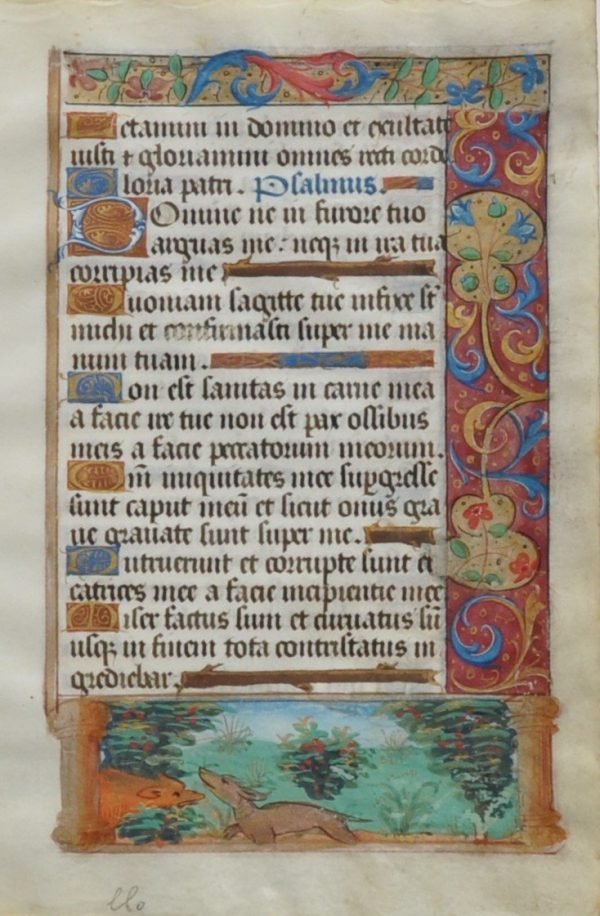 Letamini in domino et exultate
iusti ⁊ gloriamini omnes recti corde.
Gloria patri. Psalmus.
Domine ne in furore tuo
arguas me: neqȝ in ira tua
corripias me
Quoniam sagitte tue infixe st̅
michi et confirmasti super me ma
num tuam.
Non est sanitas in carne mea
a facie ire tue non est pax ossibus
meis a facie peccatorum meorum.
Qm̅ iniquitates mee suꝑgresse
sunt caput meu̅ et sicut onus gra
ue grauate sunt super me.
Putruerunt et corrupte sunt ci
catrices mee a facie insipientie mee
Miser factus sum et curuatus su̅
usqȝ in finem tota contristatus in
grediebar.